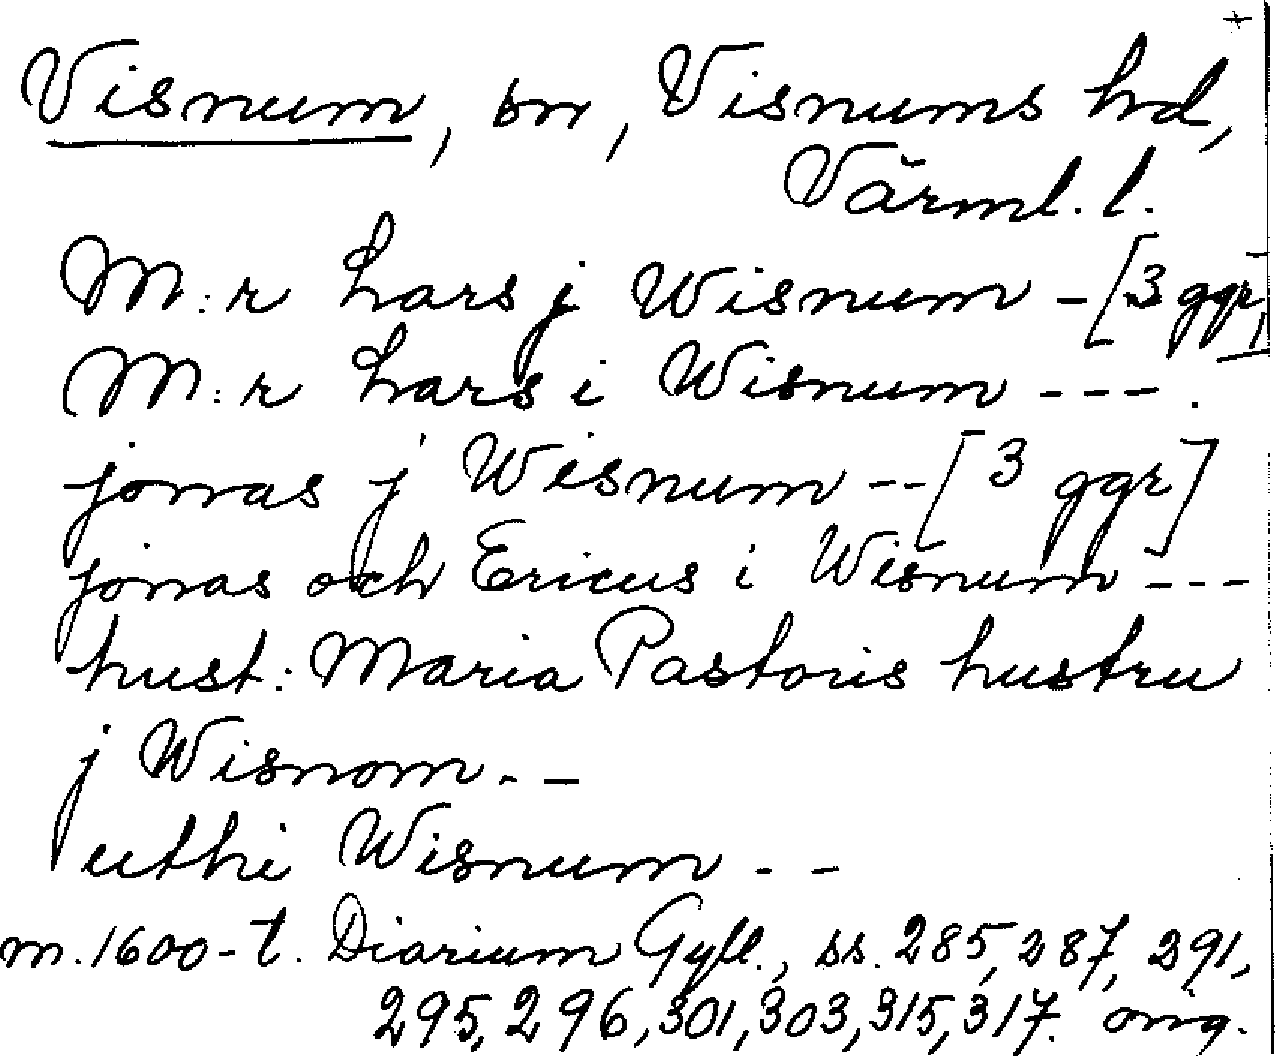 Visnum, sn, Visnums hd,
Värml. l.
M:r Lars j Wisnum - [3 ggr]
M:r Lars i Wisnum ---.
jonas j Wisnum -- [3 ggr]
jonas och Ericus i Wisnum ---
hust: Maria Pastoris hustru
j Wisnom --
uthi Wisnum --
m. 1600-t. Diarium Gyll., ss. 285, 287, 291,
295, 296, 301, 303, 315, 317. orig.